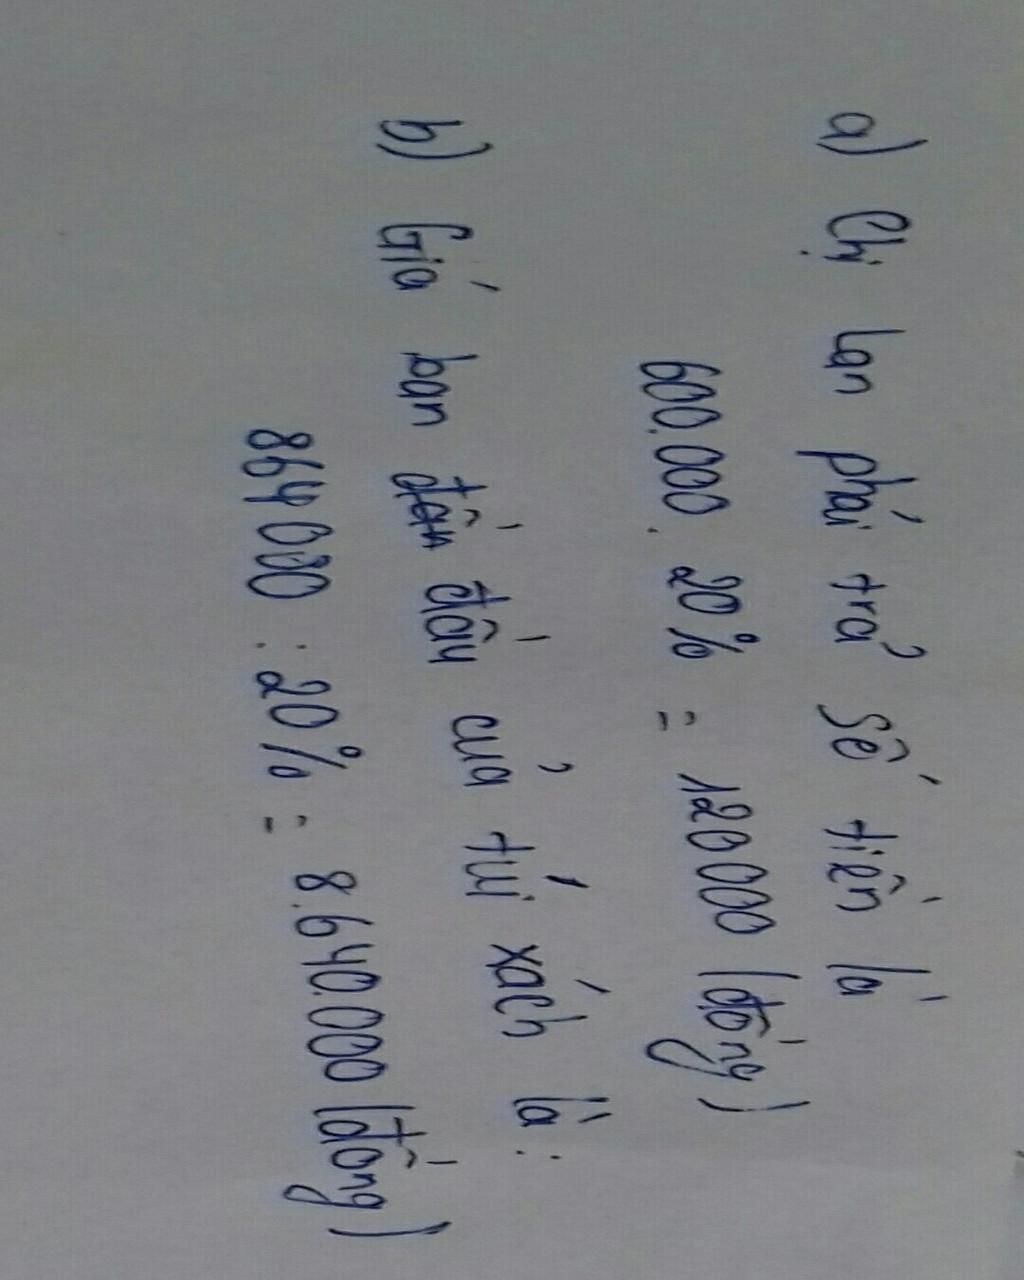 a) Chị Lan phải trả số tiền là
600.000. 20% = 120000 (đồng)
b) Giá ban đầu của túi xách là:
864000 : 20% = 8.640.000 (đồng)